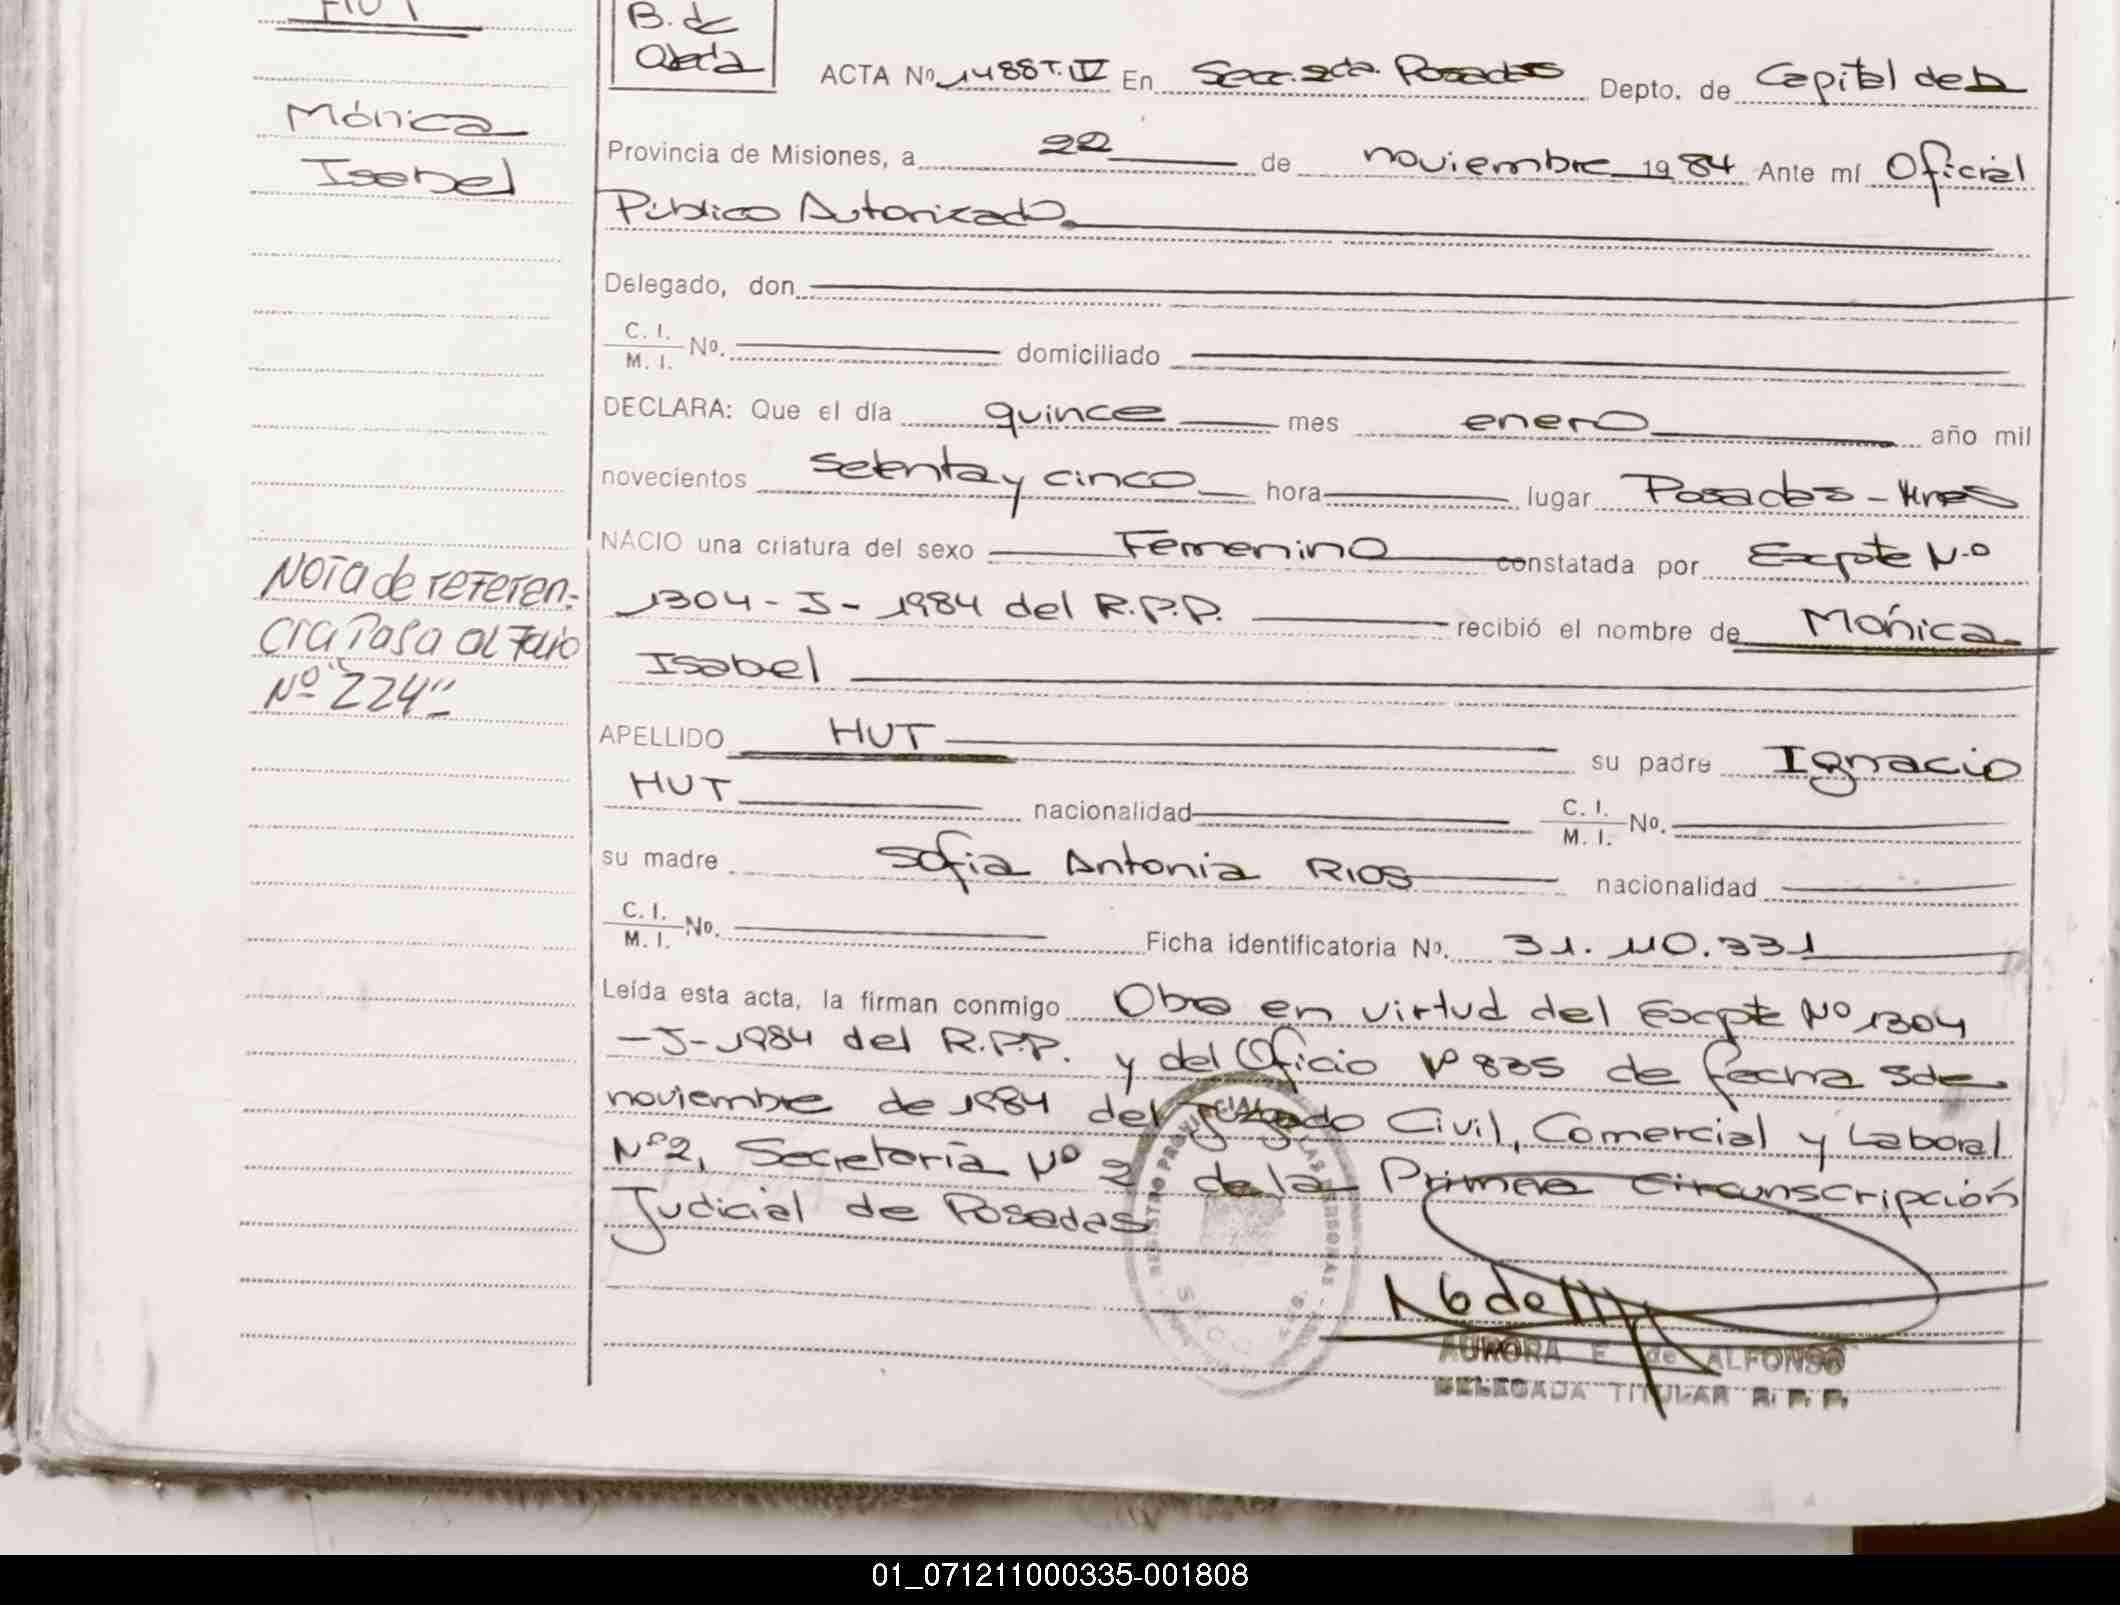 HUT
Mónica
Isabel
Nota de referen-
cia Pasa al Folio
Nº "224"
B. de
Ojeda
ACTA Nº 1488 T. IV En Secc. 2da. Posadas Depto. de Capital de la
Provincia de Misiones, a 22 de noviembre 1984 Ante mí Oficial
Público Autorizado.
Delegado, don
C. I.
M. I. Nº. domiciliado
DECLARA: Que el día quince mes enero año mil
novecientos setenta y cinco hora lugar Posadas - Mnes
NACIO una criatura del sexo Femenino constatada por Excpte Nº
1304 - J - 1984 del R.P.P. recibió el nombre de Mónica
Isabel
APELLIDO HUT su padre Ignacio
HUT nacionalidad C. I.
M. I. Nº.
su madre Sofia Antonia RIOS nacionalidad
C. I.
M. I. Nº. Ficha identificatoria Nº. 31.110.331
Leída esta acta, la firman conmigo Obra en virtud del Excpte Nº 1304
- J - 1984 del R.P.P. y del Oficio Nº 835 de fecha 5 de
noviembre de 1984 del Juzgado Civil, Comercial y Laboral
Nº 2, Secretaría Nº 2 de la Primera Circunscripción
Judicial de Posadas
REGISTRO PROVINCIAL LAS PERSONAS
AURORA E. de ALFONSO
DELEGADA TITULAR R. P. P.
01_071211000335-001808